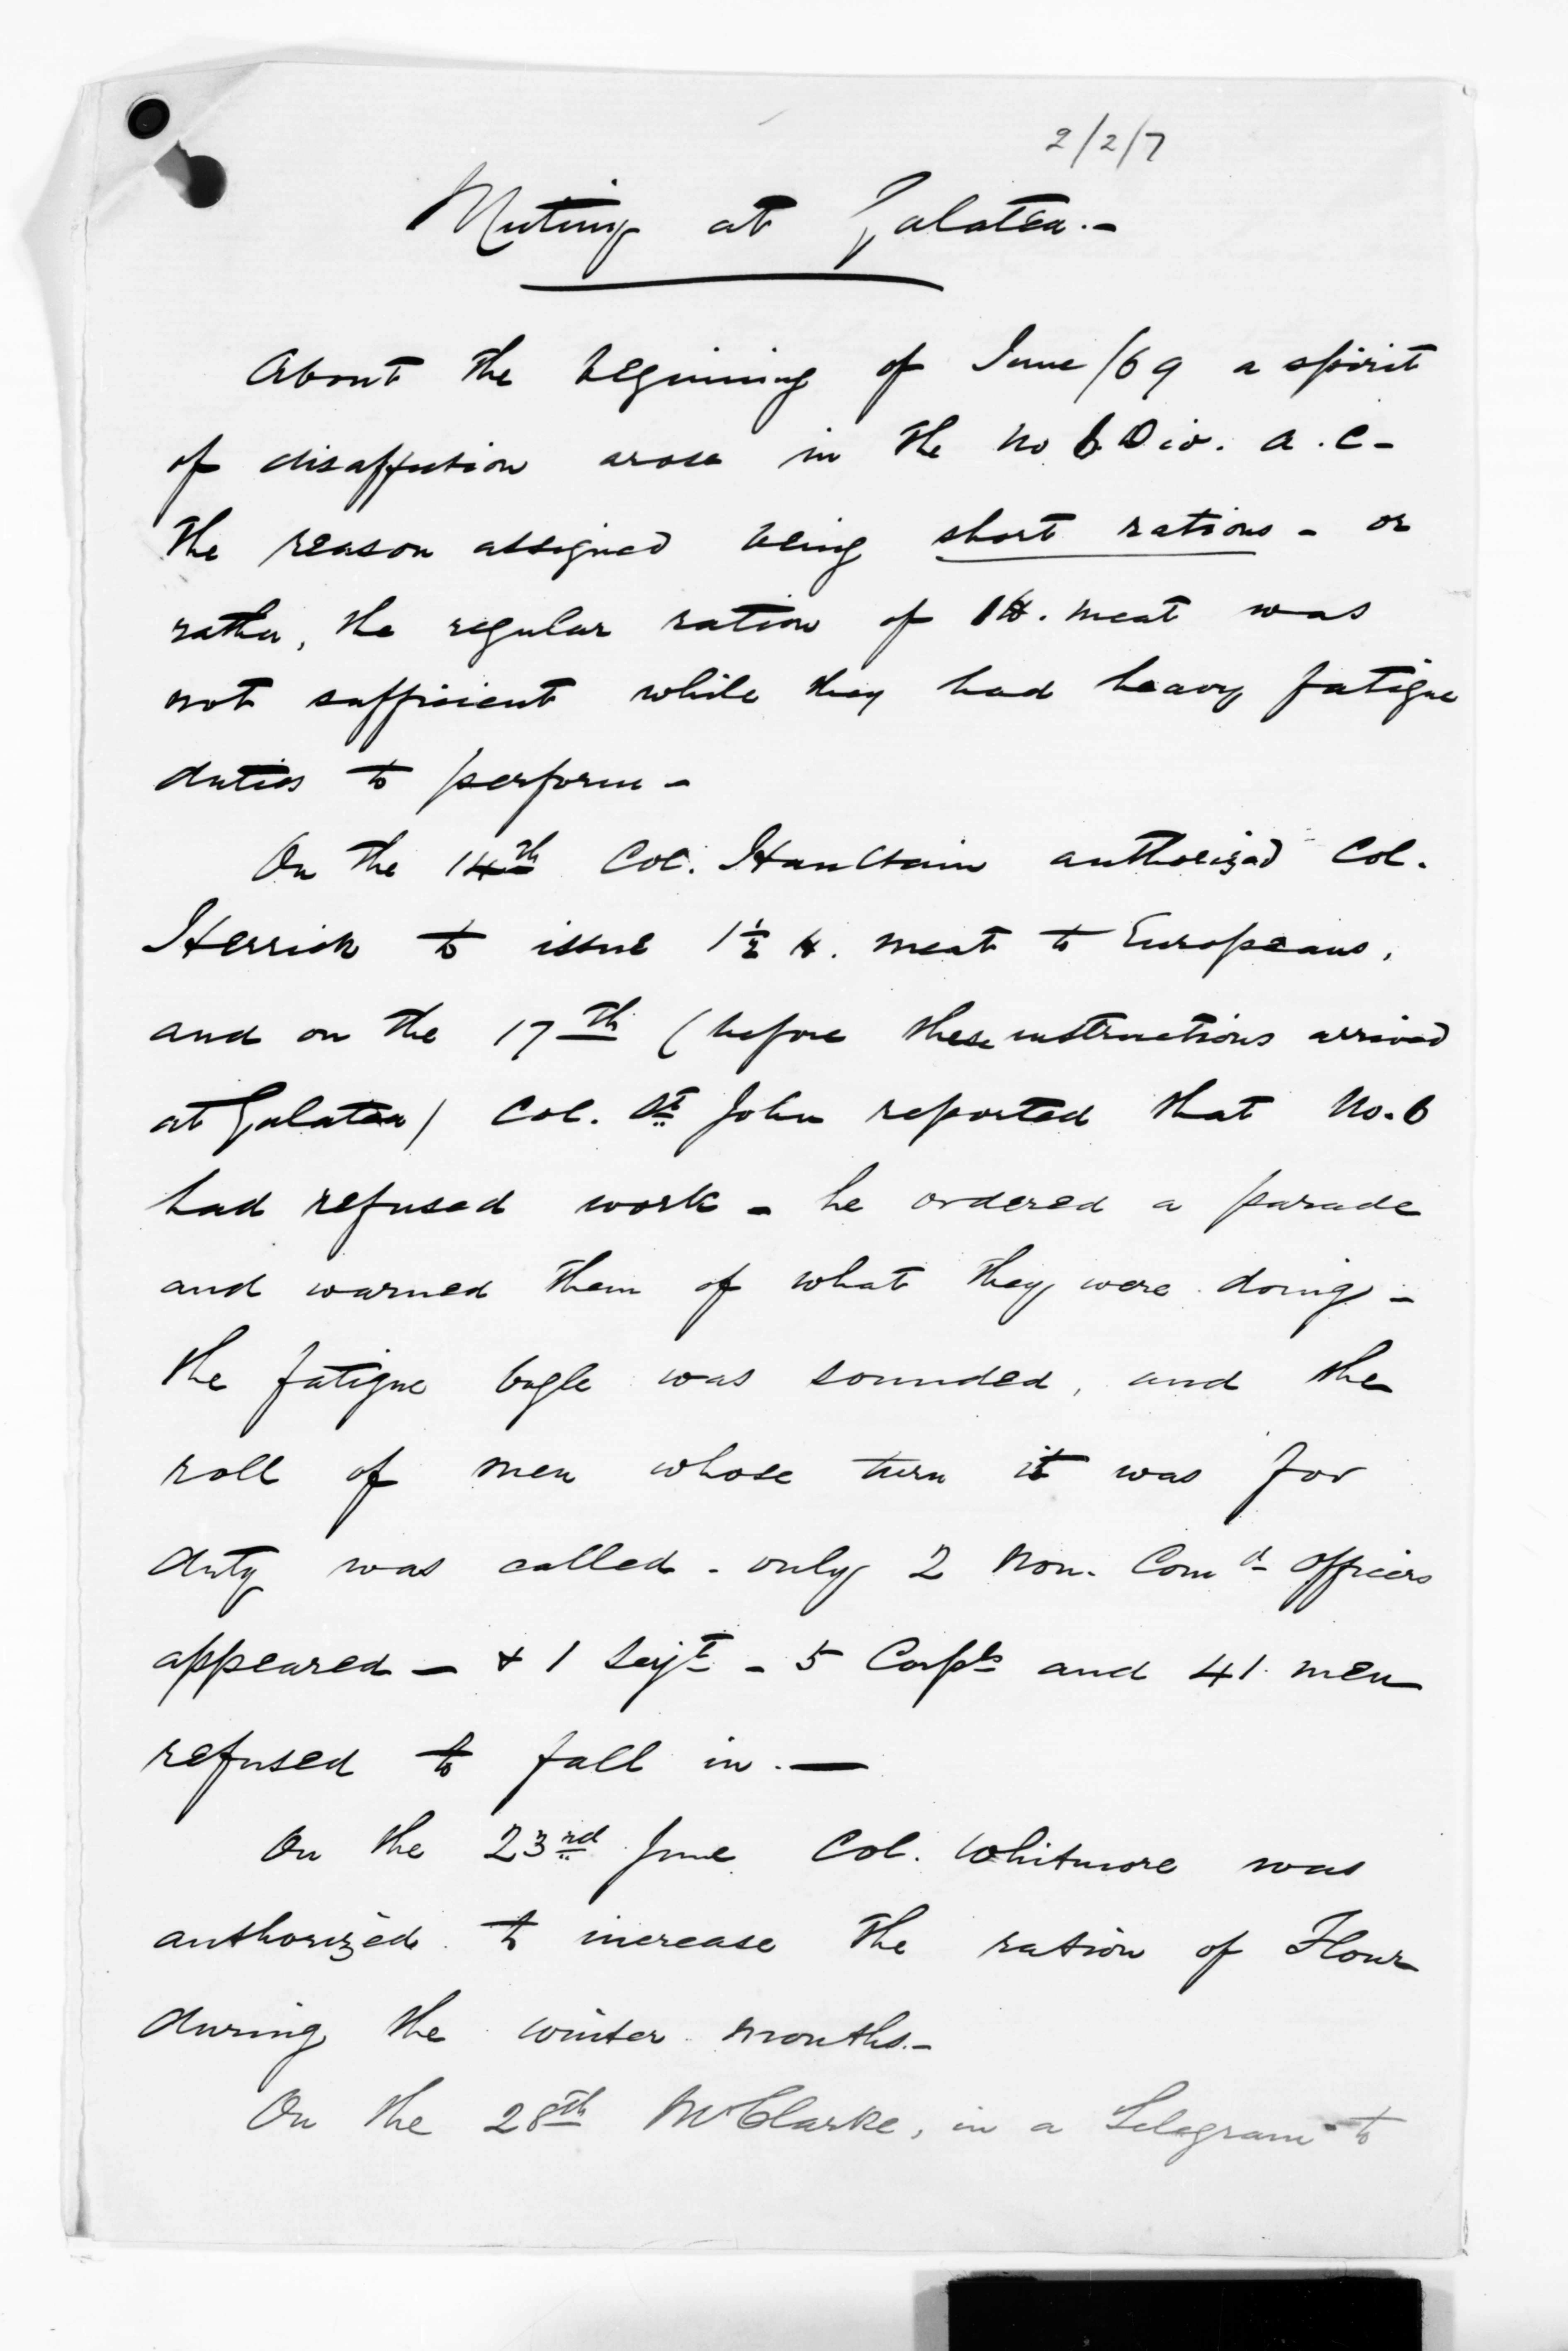 2/2/7
Mutiny at Galatea.-
About the beginning of June/69 a spirit
of disaffection arose in the No 6 Div. A.C-
the reason assigned being short rations - or
rather, the regular ration of 1 lb. meat was
not sufficient while they had heavy fatigue
duties to perform -
On the 14th Col. Haultain authorized Col.
Herrick to issue 1½ lb. meat to Europeans,
and on the 17th (before these instructions arrived
at Galatea) Col. St John reported that No. 6
had refused work - he ordered a parade
and warned them of what they were doing -
the fatigue bugle was sounded, and the
roll of men whose turn it was for
duty was called - only 2 Non. Comd officers
appeared - + 1 Serjt - 5 Corpls and 41 men
refused to fall in. -
On the 23rd June Col. Whitmore was
authorized to increase the ration of Flour
during the winter months.-
On the 28th Mr Clarke, in a Telegram to